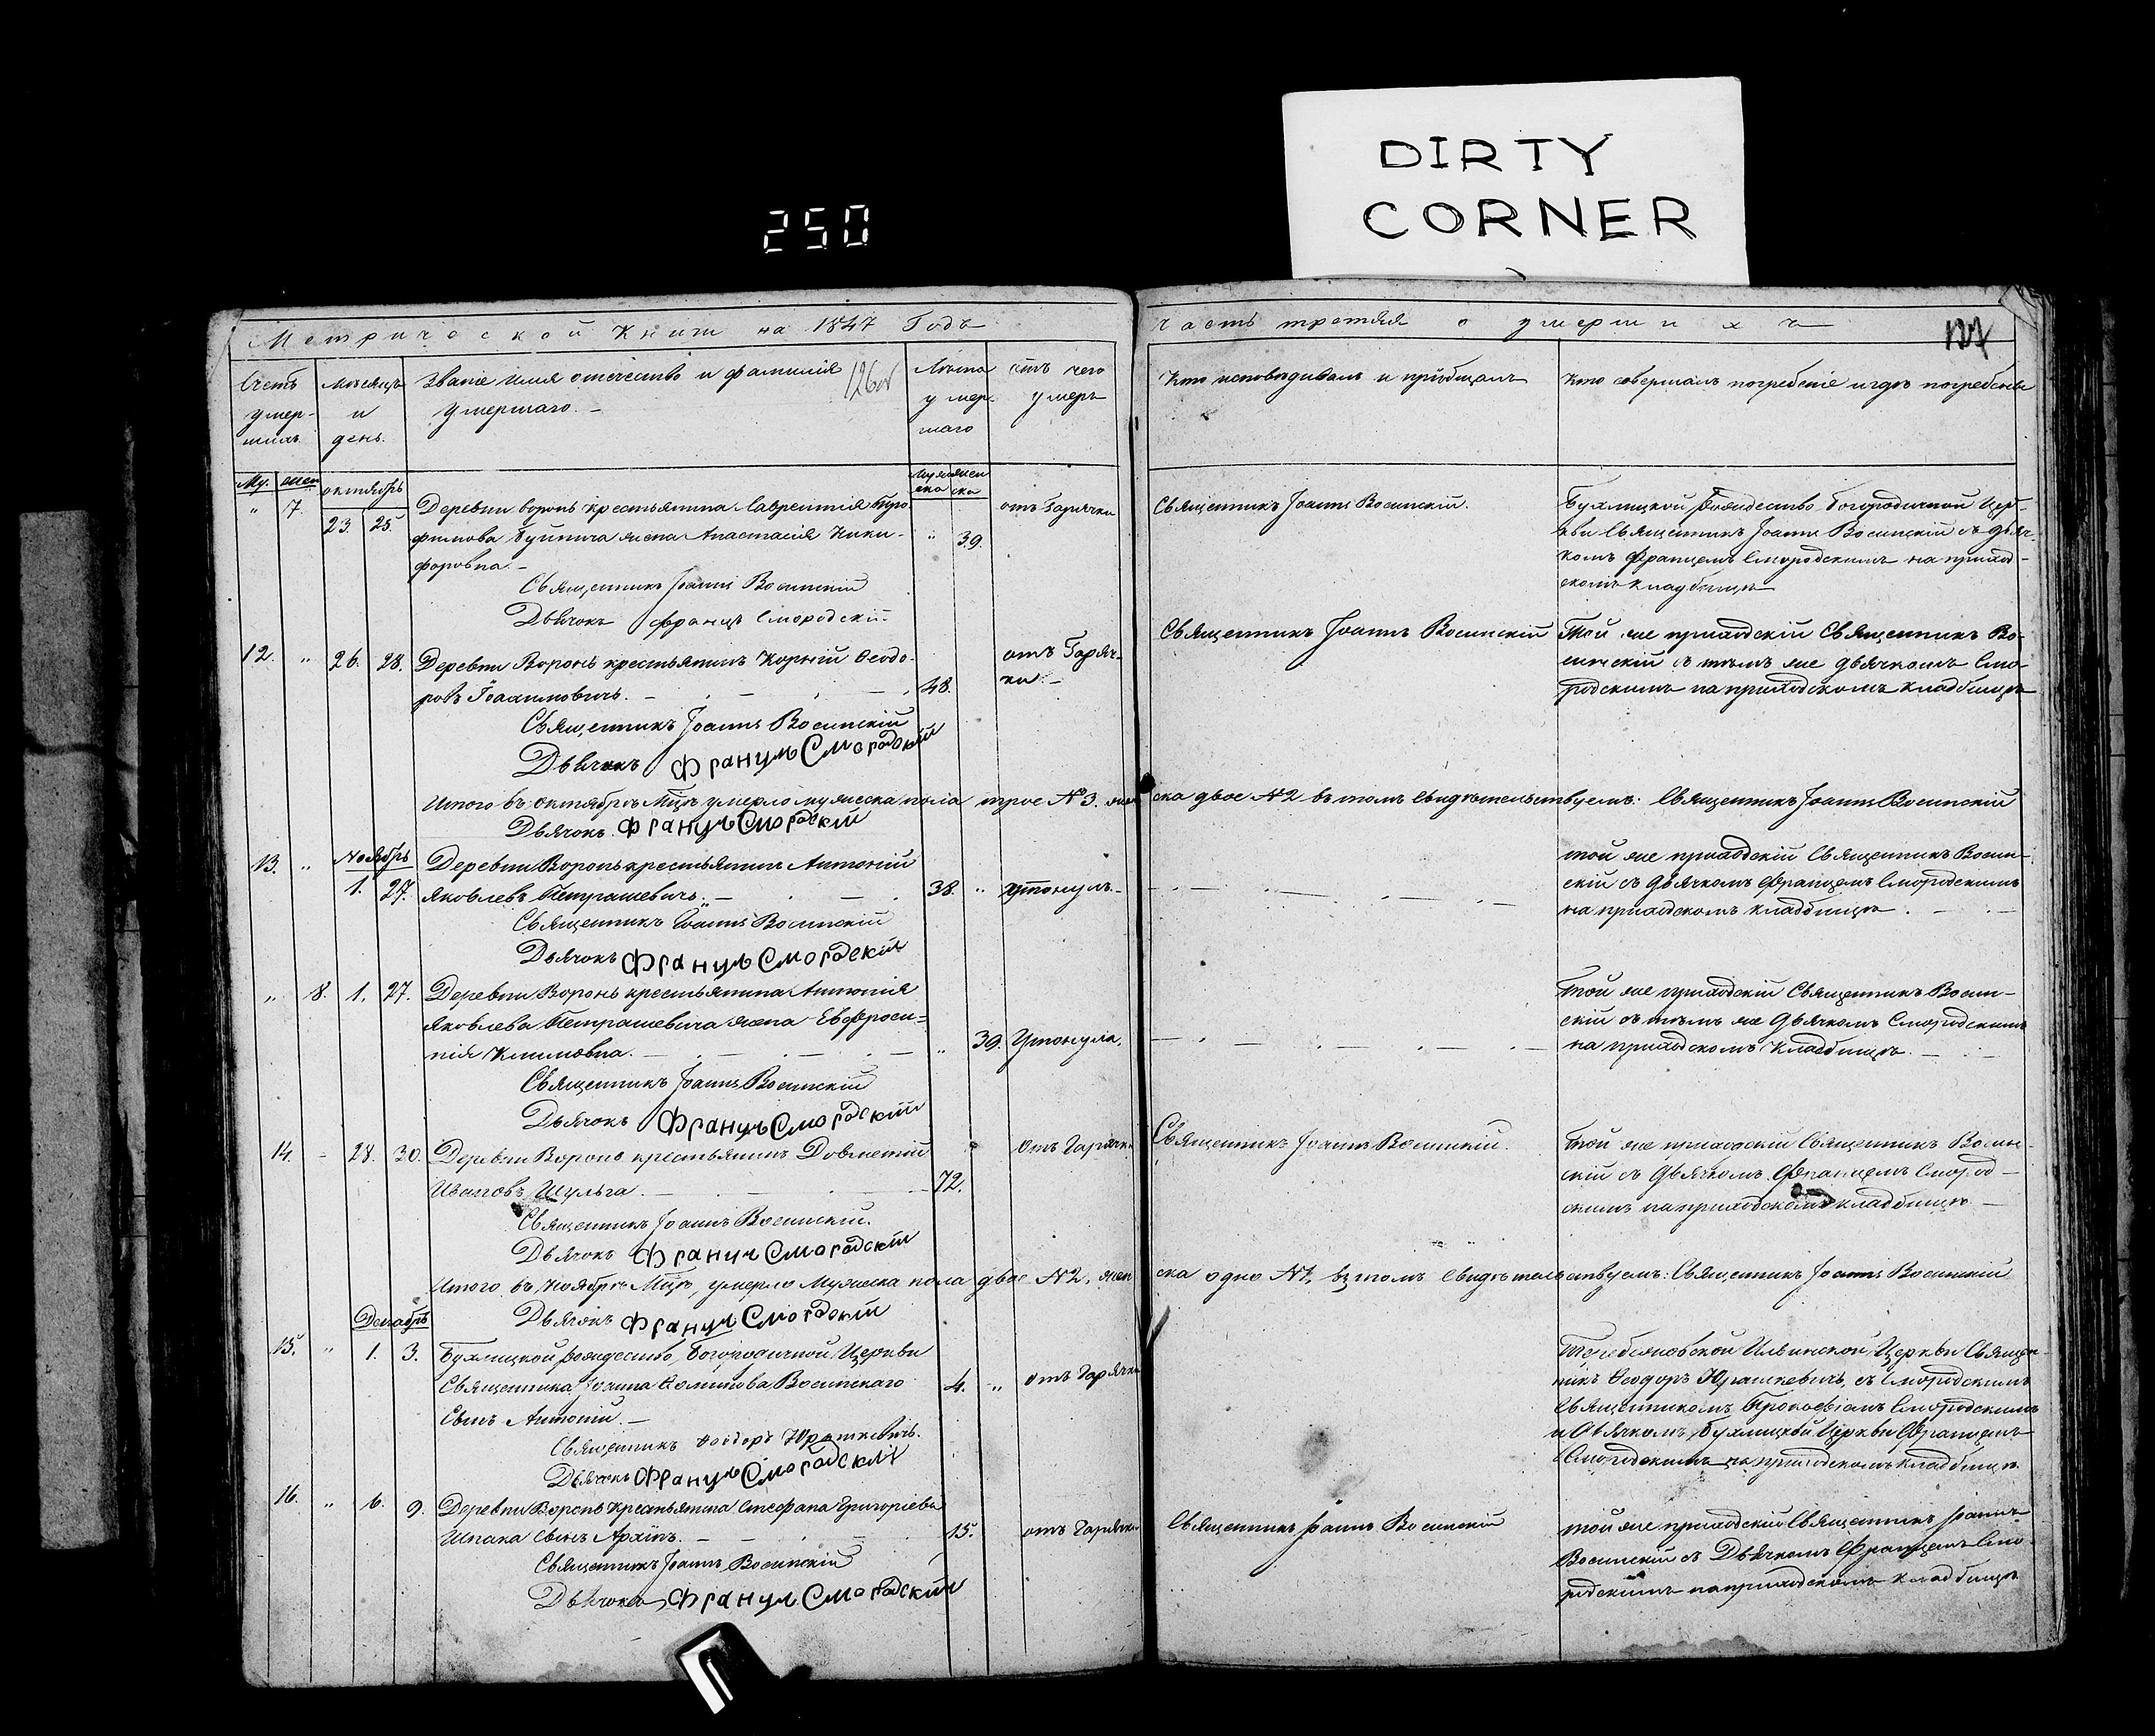 DIRTY
CORNER
250
Метрической Книги на 1847 Годъ
часть третяя о умершихъ
Счетъ умер-
шихъ
Мѣсяцъ
и
день.
Званіе имя отечество и фамилія
умершаго. –
126об
Лѣта
умер
шаго
отъ чего
умеръ
Кто исповѣдивалъ и пріобщалъ
Кто совершалъ погребеніе и гдѣ погребены
Му. жен
октябрь
Муже
ска
жен
ска
" 7. 23 25.
Деревни Воронь крестьянина Лаврентія Тро
фимова Буйнича жена Анастасія Ники-
форовна. –
" 39.
отъ Горячки
Священникъ Іоаннъ Восинскій.
Бухлицкой Рождество-Богородичной Цер-
кви Священникъ Іоаннъ Восинскій съ дьяч-
комъ Францемъ Смородскимъ на приход-
скомъ кладбищѣ
Священникъ Іоаннъ Восинскій
Дьячокъ Францъ Смородскій
12. " 26. 28.
Деревни Воронь крестьянинъ Корній Ѳеодо-
ровъ Іоахимовичъ. –
48.
отъ Горяч-
ки. –
Священникъ Іоаннъ Восинскій
Той же приходскій Священникъ Во-
синскій съ тѣмъ же дьячкомъ Смо-
родскимъ на приходскомъ кладбищѣ
Священникъ Іоаннъ Восинскій
Дьячокъ Францъ Смородскій
Итого въ октябрѣ Мцѣ умерло мужеска пола трое №3. женска двое №2 въ томъ свидѣтельствуемъ: Священникъ Іоаннъ Восинскій
Дьячокъ Францъ Смородскій
Ноябрь
13. " 1. 27.
Деревни Воронь крестьянинъ Антоній
Яковлевъ Петрашевичъ. –
38. "
утонулъ –
той же приходскій Священникъ Восин-
скій съ дьячкомъ Францемъ Смородскимъ
на приходскомъ кладбищѣ.
Священникъ Іоаннъ Восинскій
Дьячокъ Францъ Смородскій
" 8. 1. 27.
Деревни Воронь крестьянина Антонія
Яковлева Петрашевича жена Евфроси=
нія Климовна. –
" 39.
Утонула.
Той же приходскій Священникъ Восин-
скій съ тѣмъ же дьячкомъ Смородскимъ
на приходскомъ кладбищѣ. –
Священникъ Іоаннъ Восинскій
Дьячокъ Францъ Смородскій
14. - 28. 30.
Деревни Воронь крестьянинъ
Ивановъ Шульга. –
72.
Отъ Горячки
Священникъ Іоаннъ Восинскій.
Той же приходскій Священникъ Восин-
скій съ дьячкомъ Францемъ Смород-
скимъ на приходскомъ кладбищѣ –
Священникъ Іоаннъ Восинскій.
Дьячокъ Францъ Смородскій
Итого въ ноябрѣ Мцѣ, умерло Мужеска пола двое №2, женска одно №1, въ томъ свидѣтельствуемъ: Священникъ Іоаннъ Восинскій
Дьячокъ Францъ Смородскій
Декабрь
15. " 1. 3.
Бухлицкой Рождество-Богородичной Церкви
Священника Іоанна Восинскаго
Сынъ Антоній. –
4. "
отъ Горячки
Ильинской Церкви Священ-
никъ Ѳеодоръ Юрашкевичъ, съ Смородскимъ
Священникомъ Прокофіемъ Смородскимъ
и дьячкомъ Бухлицкой Церкви Францемъ
Смородскимъ на приходскомъ кладбищѣ
Священникъ Ѳеодоръ Юрашкевичъ.
Дьячокъ Францъ Смородскій
16. " 6. 9.
Деревни Воронь крестьянина Стефана Григоріева
Шпака Сынъ Архипъ. –
15.
отъ Горячки
Священникъ Іоаннъ Восинскій
той же приходскій Священникъ Іоаннъ
Восинскій съ Дьячкомъ Францемъ Смо-
родскимъ на приходскомъ кладбищѣ
Священникъ Іоаннъ Восинскій
Дьячокъ Францъ Смородскій